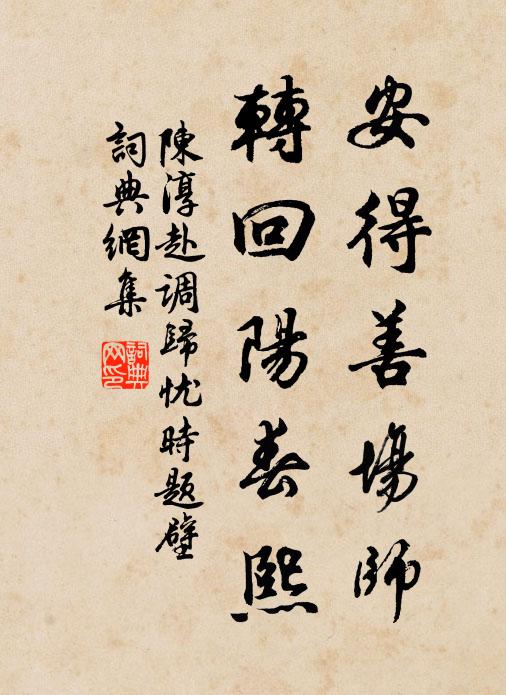 安得善場師
轉回陽春熙
陳淳赴調歸忧時題壁
詞典網集
詞典網印